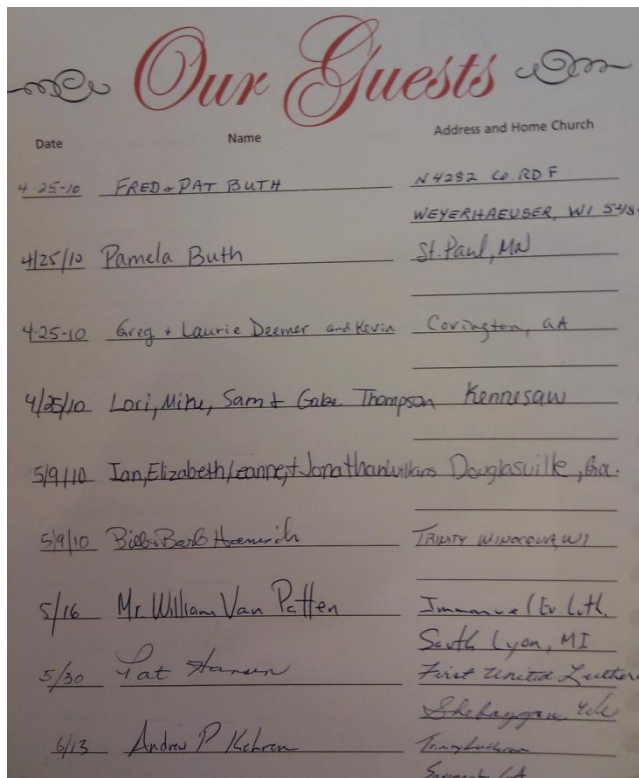 Our Guests
Date Name Address and Home Church
4-25-10 FRED + PAT BUTH N4282 CO. RD F
WEYERHAEUSER, WI 548
4/25/10 Pamela Buth St. Paul, MN
4-25-10 Greg + Laurie Deemer and Kevin Covington, GA
4/25/10 Lori, Mike, Sam + Gabe Thompson Kennesaw
5/9/10 Ian, Elizabeth, Leanne, + Jonathan Wilkins Douglasville, Ga.
5/9/10 Bill & Barb TRINITY WINOCQUA, WI
5/16 Mr. William Van Patten Immanuel Ev. Luth.
South Lyon, MI
5/30 Pat Hansen First United Luther
Sheboygan
6/13 Andrew P